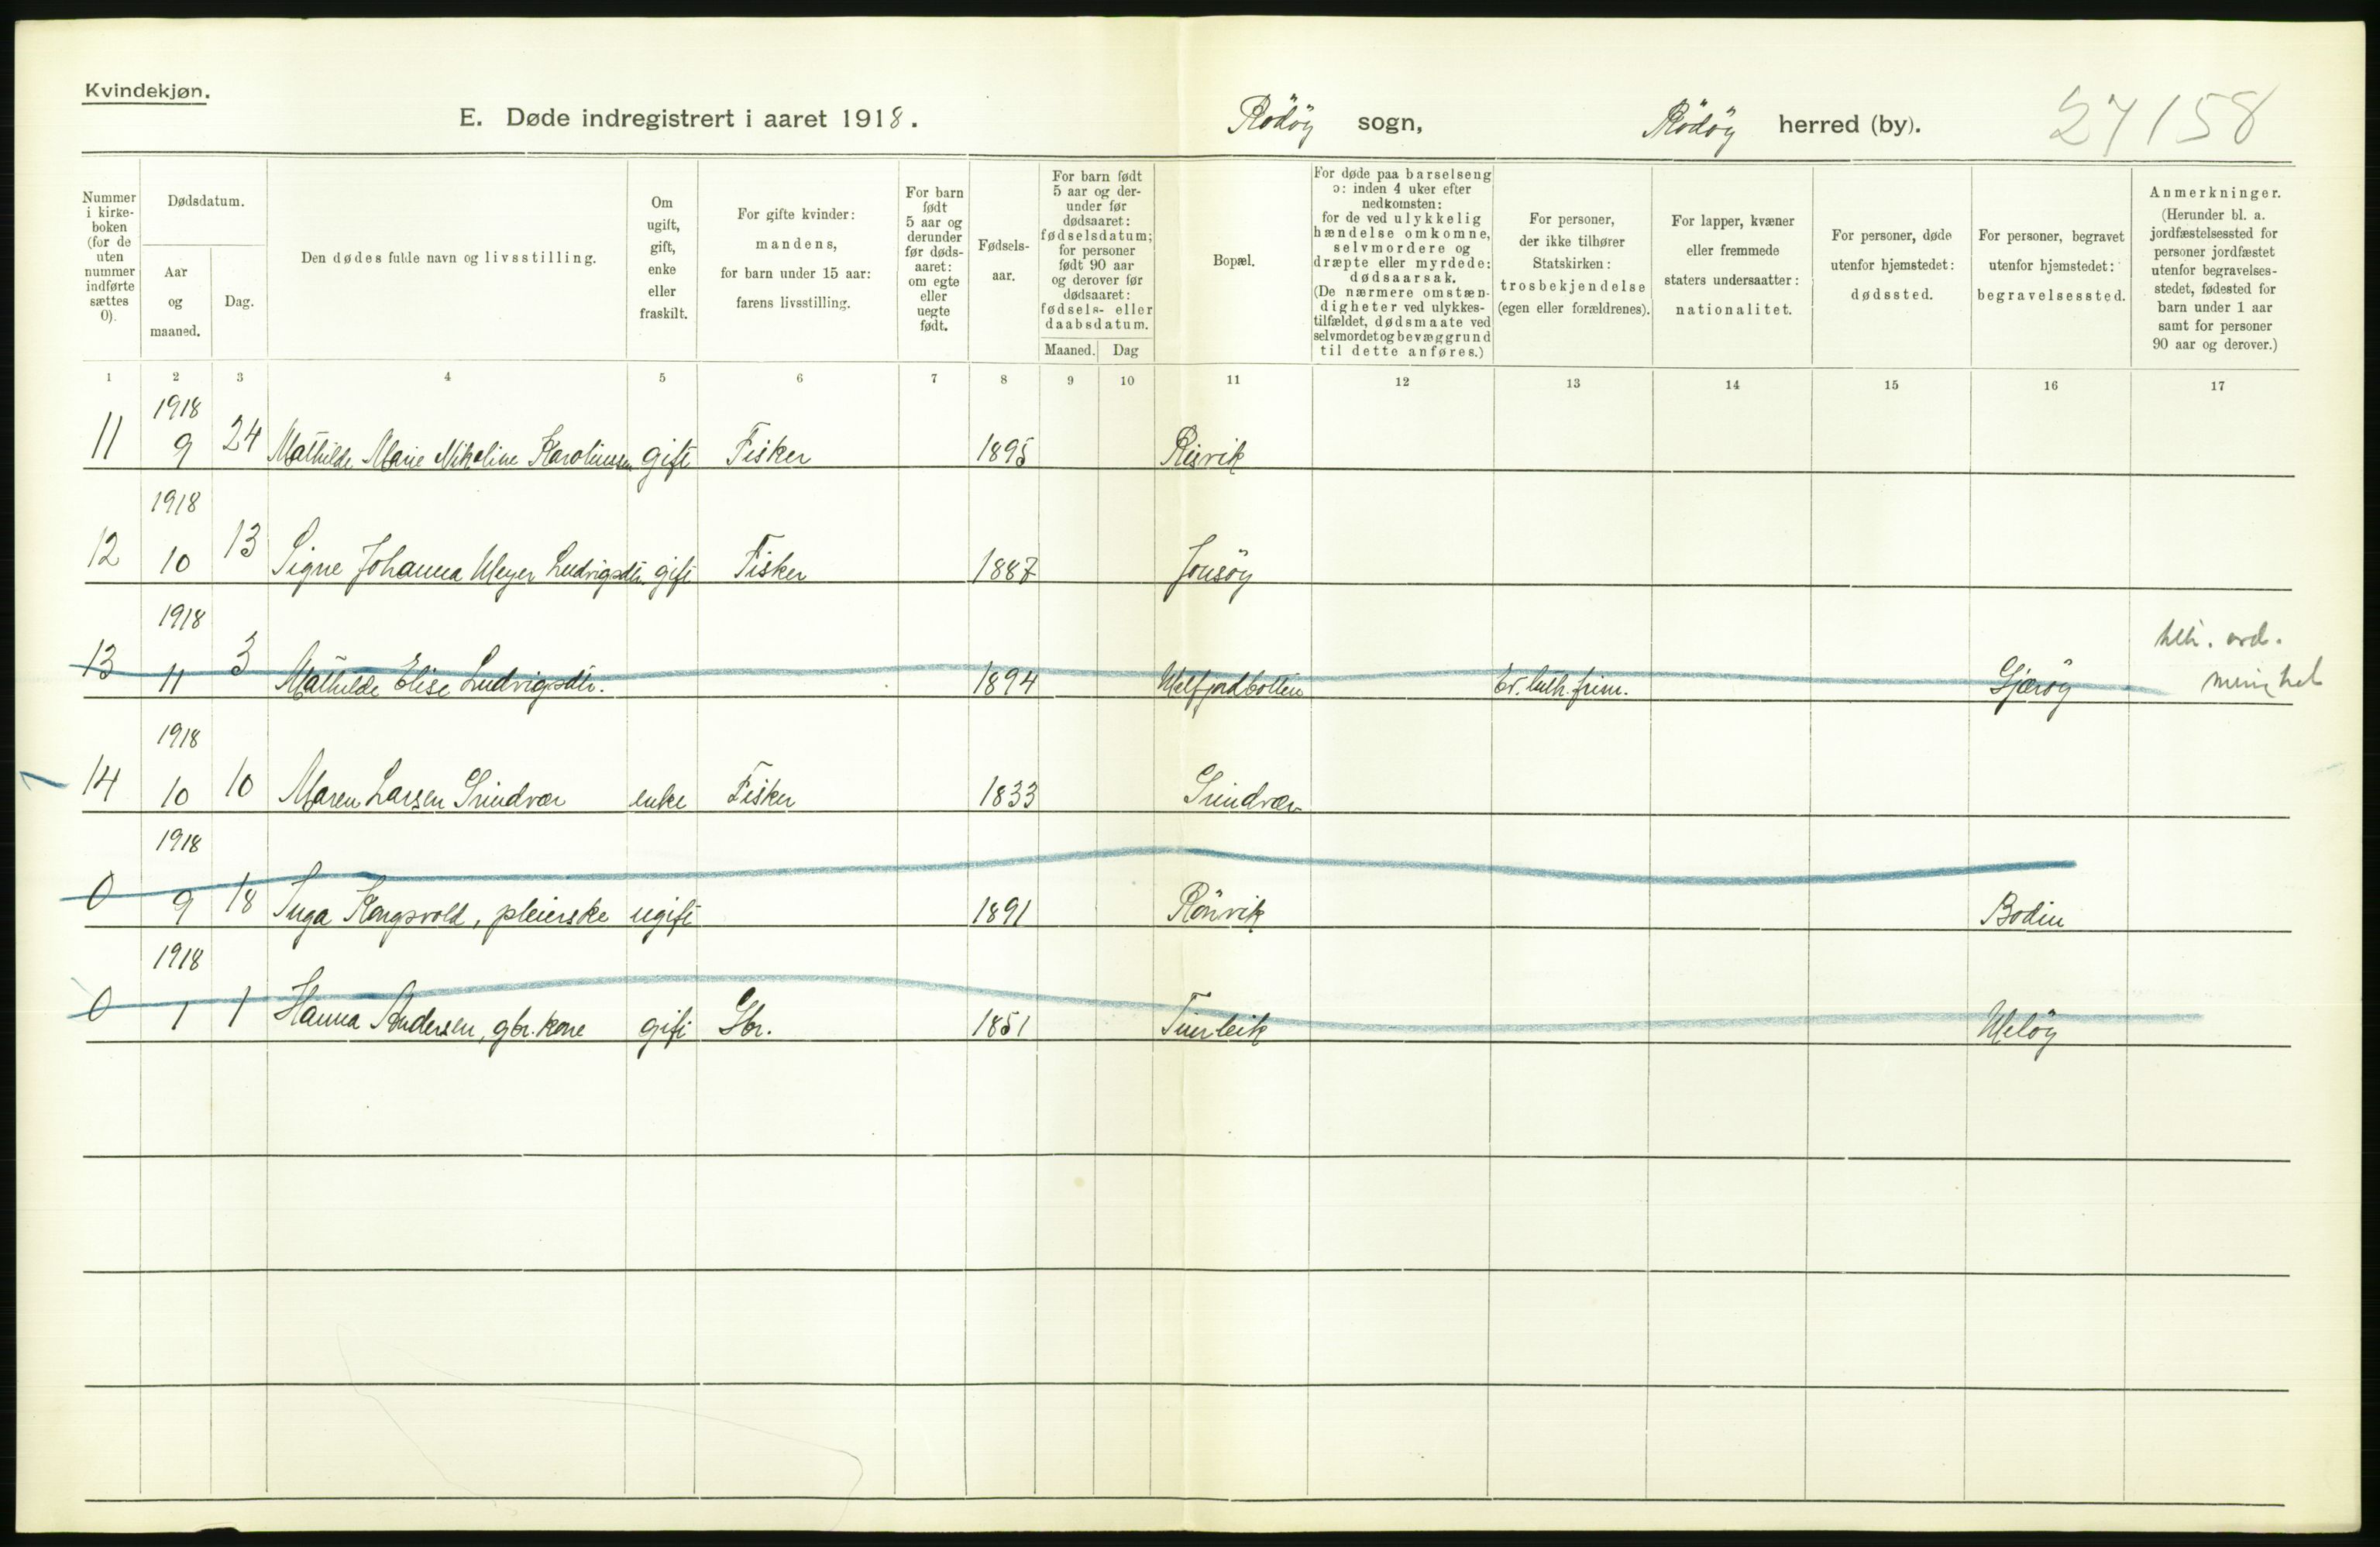 Kvindekjøn.
E. Døde indregistrert i aaret 1918. Rödöy sogn, Rödöy herred (by). 27/158
Nummer
i kirke-
boken
(for de
uten
nummer
indførte
sættes
0).
Dødsdatum.
Aar
og
maaned.
Dag.
Den dødes fulde navn og livsstilling.
Om
ugift,
gift,
enke
eller
fraskilt.
For gifte kvinder:
mandens,
for barn under 15 aar:
farens livsstilling.
For barn
født
5 aar og
derunder
før døds-
aaret:
om egte
eller
uegte
født.
Fødsels-
aar.
For barn født
5 aar og der-
under før
dødsaaret:
fødselsdatum;
for personer
født 90 aar
og derover før
dødsaaret:
fødsels- eller
daabsdatum.
Maaned. Dag
Bopæl.
For døde paa barselseng
ɔ: inden 4 uker efter
nedkomsten:
for de ved ulykkelig
hændelse omkomne,
selvmordere og
dræpte eller myrdede:
dødsaarsak.
(De nærmere omstæn-
digheter ved ulykkes-
tilfældet, dødsmaate ved
selvmordet og bevæggrund
til dette anføres.)
For personer,
der ikke tilhører
Statskirken:
trosbekjendelse
(egen eller forældrenes).
For lapper, kvæner
eller fremmede
staters undersaatter:
nationalitet.
For personer, døde
utenfor hjemstedet:
dødssted.
For personer, begravet
utenfor hjemstedet:
begravelsessted.
Anmerkninger.
(Herunder bl. a.
jordfæstelsessted for
personer jordfæstet
utenfor begravelses-
stedet, fødested for
barn under 1 aar
samt for personer
90 aar og derover.)
1 2 3 4 5 6 7 8 9 10 11 12 13 14 15 16 17
1918
11 9 24 Mathilde Marie Nikoline Karolinssen gift Fisker 1895 Risvik
1918
12 10 13 Signe Johanna Meyer Ludvigsdtr. gift Fisker 1887 Jonsöy
1918
13 11 3 Mathilde Elise Ludvigsdtr. 1894 Melfjordbotten Ev. luth. frim. Gjæröy
1918
14 10 10 Maren Larsen Svindvær enke Fisker 1833 Svindvær
1918
0 9 18 Inga Kongsvold, pleierske ugift 1891 Rönvik Bodin
1918
0 1 1 Hanna Andersen, gbr. kone gift Gbr. 1851 Meløy